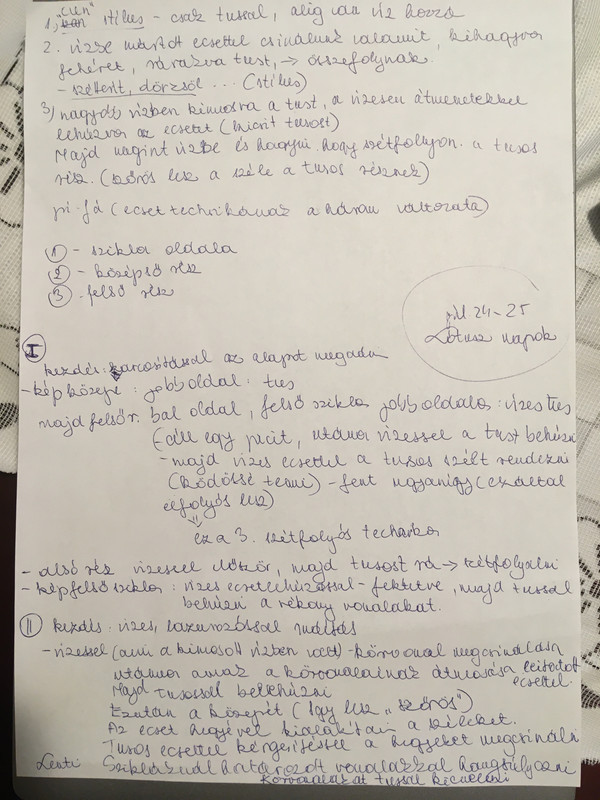 1, "cien"
kan stílus - csak tussal, alig van víz hozzá
2. vízbe mártott ecsettel csinálunk valamit, kihagyva
fehéret, rárakva tust, → összefolynak.
- szétterít, dörzsöl ... (stílus)
3, nagyjából vízben kimosva a tust, a vizesen átmenetekkel
lehúzva az ecsetet (kicsit tusost)
Majd megint vízbe és hagyni hogy szétfolyjon a tusos
rész. (szőrös lesz a széle a tusos résznek)
pi-fá (ecset technikának a három változata)
① - szikla oldala
② - középső rész
③ - felső rész
júl. 24-25
Lótusz napok
I
kezdés: karcosítással az alapot megadni
- kép közepe: jobb oldal: tus
majd felsőr. bal oldal, felső szikla jobb oldala: vizes tus
(áll egy picit, utána vizessel a tust behúzni
- majd vizes ecsettel a tusos szélt rendezni
(ködössé tenni) - fent ugyanígy (ezáltal
elfolyós lesz)
ez a 3. szétfolyós technika
- alsó rész vizessel először, majd tusost rá → szétfolyatni
- kép felső szikla: vizes ecsetlehúzással - fektetve, majd tussal
behúzni a vékony vonalakat.
II kezdés: vizes, lazurozással indítás
- vizessel (ami a kimosott vízben volt) - körvonal megcsinálása
utána annak a körvonalainak átmosása leitatott
ecsettel.
Majd tusossal belehúzni
Ezután a közepét (Így lesz "szőrös")
Az ecset hegyével kialakítani a széleket.
Tusos ecsettel kérgesítéssel a hegyeket megcsinálni
Lenti Szikláknál határozott vonalakkal hangsúlyozni
Körvonalakat tussal kiemelni